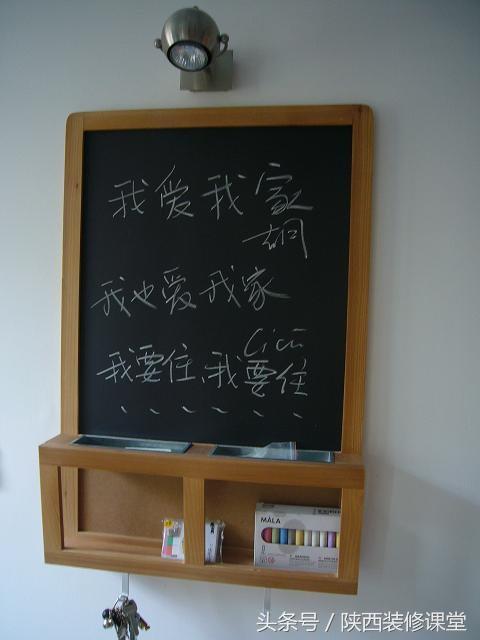 我爱我家
胡
我也爱我家
Cici
我要住、我要住
、、、、、、
MÅLA
头条号 / 陕西装修课堂